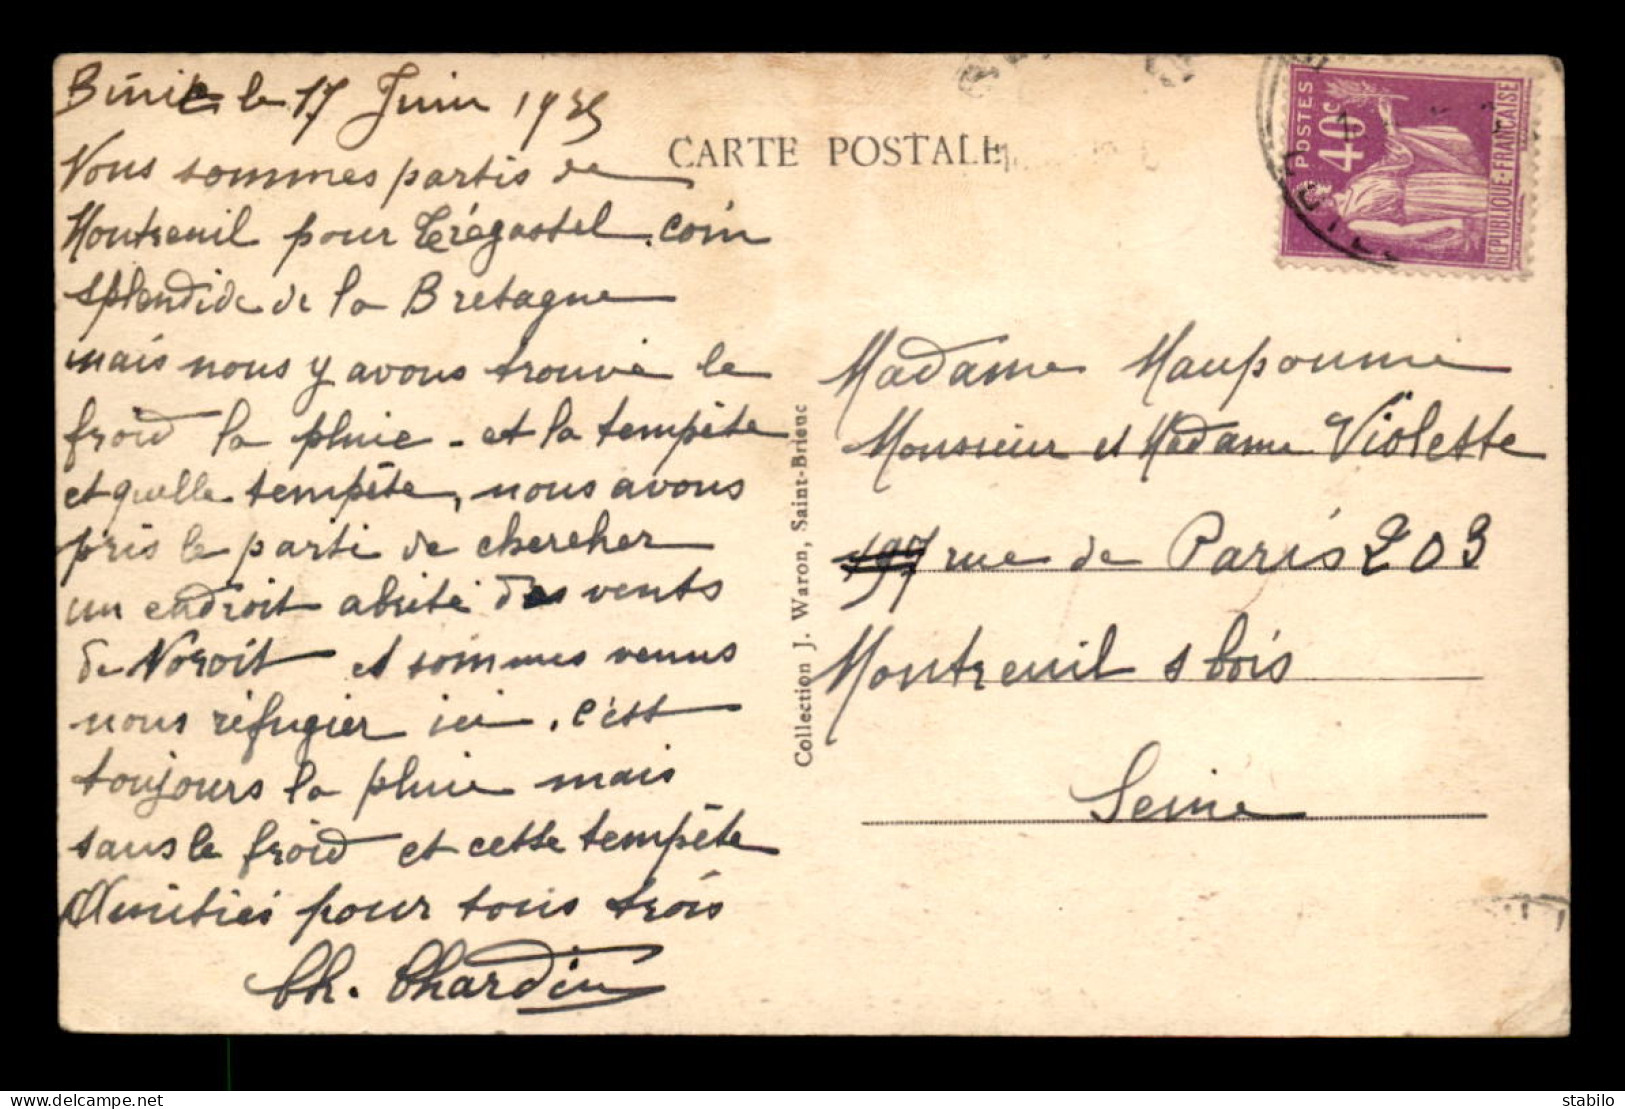 Binic le 17 Juin 1935
Nous sommes partis de
Montreuil pour Trégastel. coin
splendide de la Bretagne
mais nous y avons trouvé le
froid la pluie - et la tempête
et quelle tempête, nous avons
pris le parti de chercher
un endroit abrité des vents
de Noroit et sommes venus
nous réfugier ici. c'est
toujours la pluie mais
sans le froid et cette tempête
Amitiés pour tous trois
Ch. Chardin
CARTE POSTALE
Collection J. Waron, Saint-Brieuc
POSTES
40c
REPUBLIQUE-FRANÇAISE
Madame Maupoumé
Monsieur et Madame Violette
197 rue de Paris 203
Montreuil s bois
Seine
stabilo